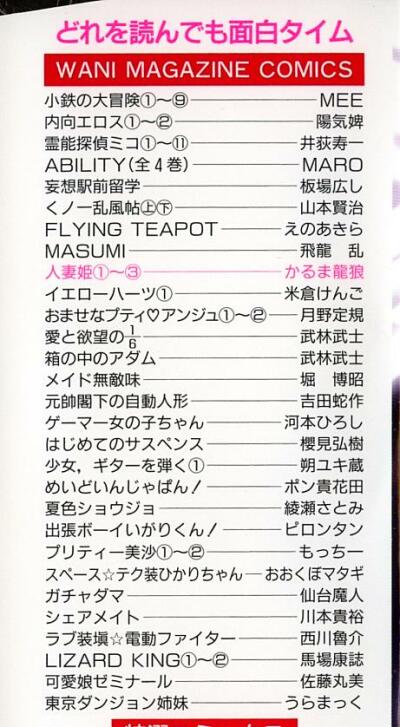 どれを読んでも面白タイム
WANI MAGAZINE COMICS
小鉄の大冒険①〜⑨ MEE
内向エロス①〜② 陽気婢
霊能探偵ミコ①〜⑪ 井荻寿一
ABILITY(全4巻) MARO
妄想駅前留学 板場広し
くノ一乱風帖㊤㊦ 山本賢治
FLYING TEAPOT えのあきら
MASUMI 飛龍 乱
人妻姫①〜③ かるま龍狼
イエローハーツ① 米倉けんご
おませなプティ♡アンジュ①〜② 月野定規
愛と欲望の1/6 武林武士
箱の中のアダム 武林武士
メイド無敵味 堀 博昭
元帥閣下の自動人形 吉田蛇作
ゲーマー女の子ちゃん 河本ひろし
はじめてのサスペンス 櫻見弘樹
少女，ギターを弾く① 朔ユキ蔵
めいどいんじゃぱん！ ポン貴花田
夏色ショウジョ 綾瀬さとみ
出張ボーイいがりくん！ ピロンタン
プリティー美沙①〜② もっちー
スペース☆テク装ひかりちゃん おおくぼマタギ
ガチャダマ 仙台魔人
シェアメイト 川本貴裕
ラブ装填☆電動ファイター 西川魯介
LIZARD KING①〜② 馬場康誌
可愛娘ゼミナール 佐藤丸美
東京ダンジョン姉妹 うらまっく